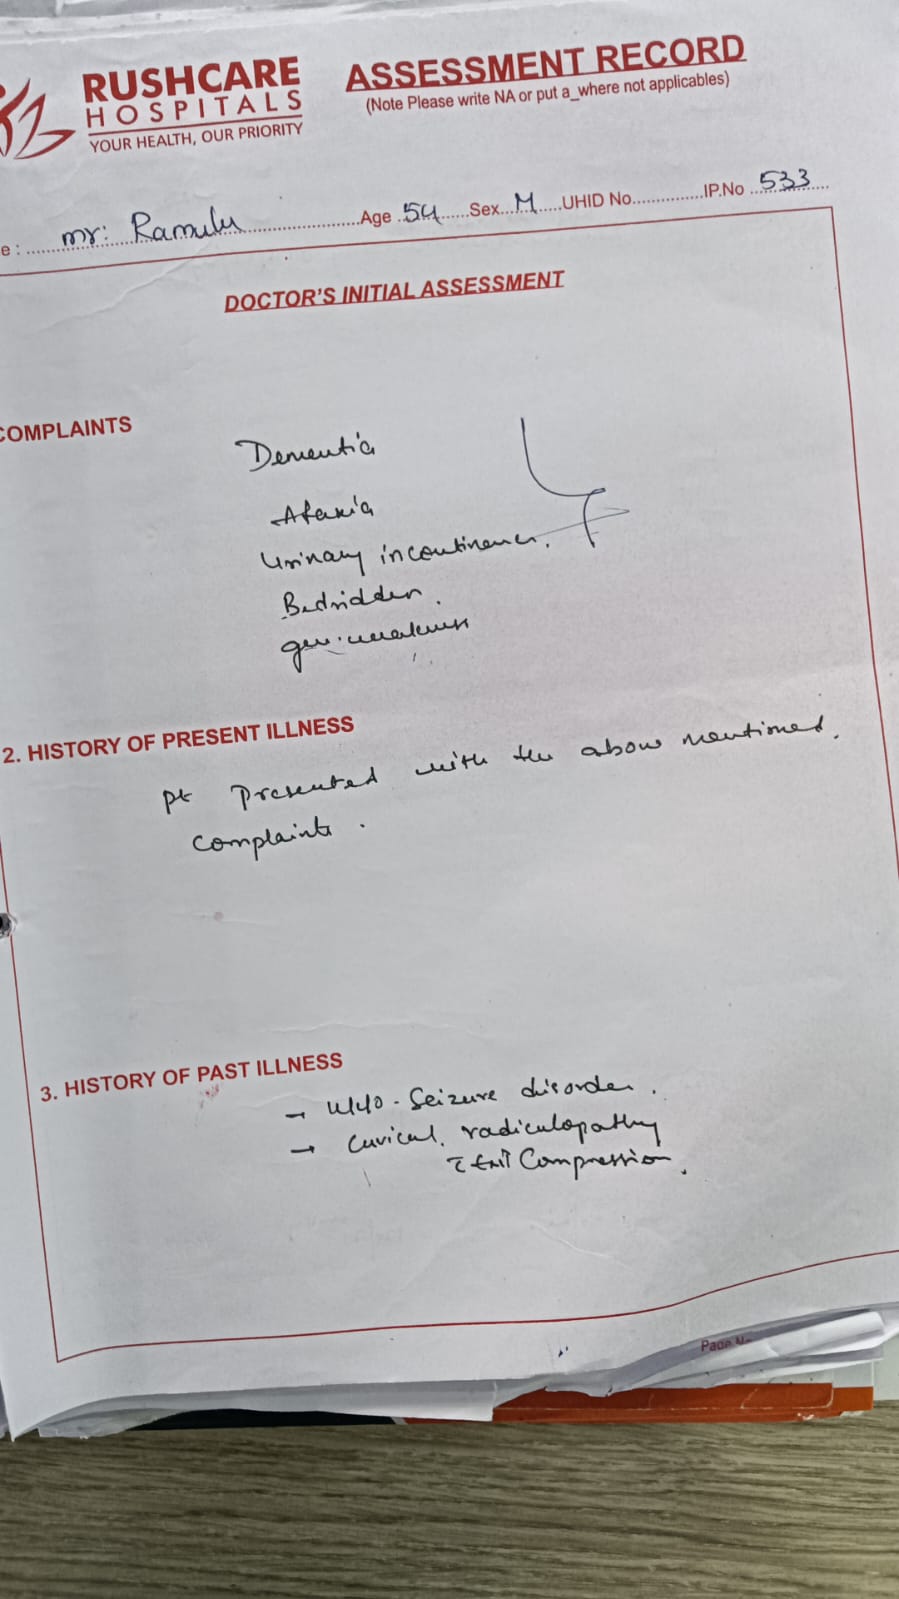 RUSHCARE
HOSPITALS
YOUR HEALTH, OUR PRIORITY
ASSESSMENT RECORD
(Note Please write NA or put a_where not applicables)
e : mr: Ramulu Age 54 Sex M UHID No. IP.No 533
DOCTOR'S INITIAL ASSESSMENT
COMPLAINTS
Dementia
Ataxia
Urinary incontinence.
Bedridden.
gen. weakness
2. HISTORY OF PRESENT ILLNESS
pt Presented with the above mentioned.
Complaints.
3. HISTORY OF PAST ILLNESS
→ K/C/O - Seizure disorder.
→ Cervical. radiculopathy
Compression.
Page No